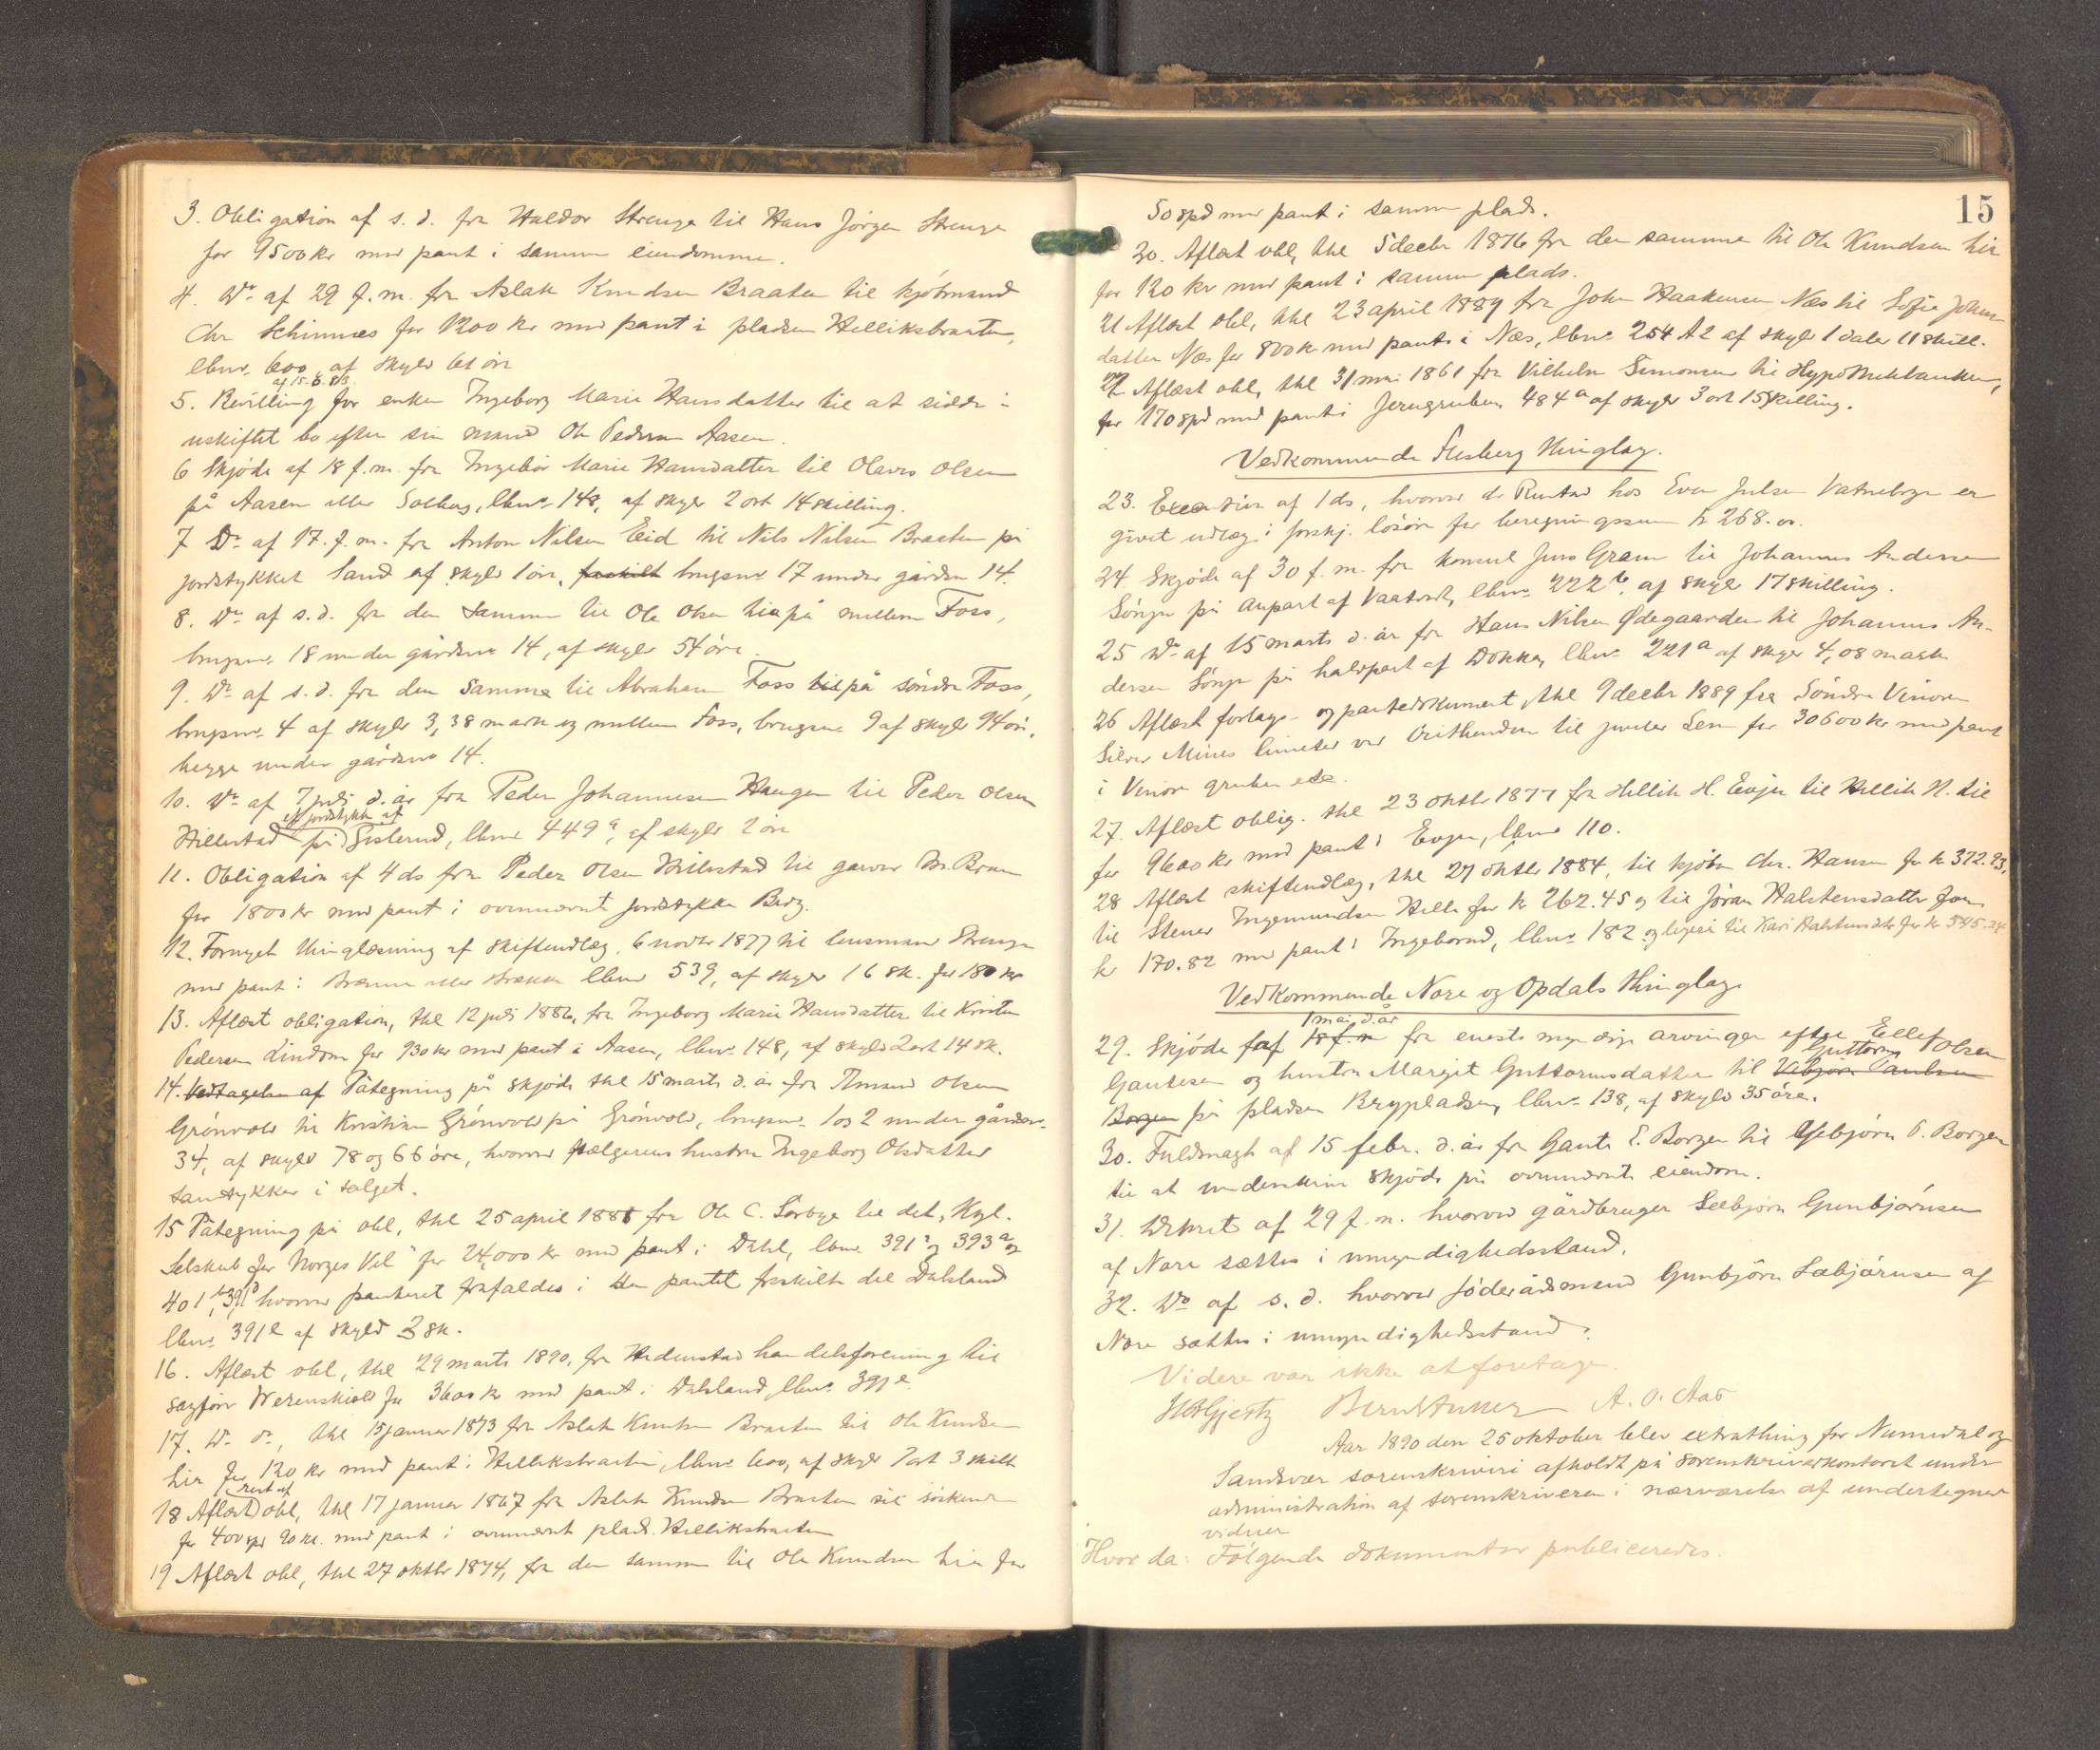 3. Obligation af s. d. fra Haldor Strenge til Hans Jörgen Strenge
for 9500 kr med pant i samme eiendomme.
4. Do af 29 f. m. fra Aslak Knudsen Braaten til kjöbmand
Chr Schinnes for 1200 kr med pant i pladsen Helliksbraaten,
lbnr. 600, af skyld 61 öre
af 15. 6. 83.
5. Bevilling for enken Ingeborg Marie Hansdatter til at sidde i
uskiftet bo efter sin mand Ole Pedersen Aasen.
6 Skjöde af 18 f. m. fra Ingebor Marie Hansdatter til Olaves Olsen
på Aasen eller Solhug, lbnr. 148, af skyld 2 ort 14 skilling.
7 Do af 17. f. m. fra Anton Nilsen Eid til Nils Nilsen Braaten på
jordstykket Sand af skyld 1 öre, fraskilt brugsnr 17 under gården 14.
8. Do af s. d. fra den samme til Ole Olsen Lia på mellem Foss,
brugsnr. 18 under gårdsnr 14, af skyld 54 öre.
9. Do af s. d. fra den samme til Abraham Foss til på söndre Foss,
brugsnr. 4 af skyld 3,38 mark og mellem Foss, brugsnr. 9 af skyld 94 öre,
begge under gårdsnr 14.
10. Do af 7 juli d. år fra Peder Johannesen Haugen til Peder Olsen
et jordstykke af
Hillestad på Gislerud, lbnr 449 a, af skyld 2 öre
11. Obligation af 4 ds fra Peder Olsen Hillestad til garver M. Bruun
for 1800 kr med pant i ovennævnt jordstykke Berg.
12. Fornyet thinglæsning af skifteudlæg, 6 novbr 1877 til lensmand Strenge
med pant i Brænna eller Brækka lbnr 539, af skyld 16 sk. for 180 kr
13. Aflæst obligation, thl 12 juli 1886, fra Ingeborg Marie Hansdatter til Kristen
Pedersen Lindom for 930 kr med pant i Aasen, lbnr. 148, af skyld 2 ort 14 sk.
14. Vedtagelse af Påtegning på skjöde thl 15 marts d. år fra Amund Olsen
Grönvold til Kristian Grönvold på Grönvold, brugsnr. 1 og 2 under gårdsnr.
34, af skyld 78 og 66 öre, hvorved sælgerens hustru Ingeborg Olsdatter
samtykker i salget.
15 Påtegning på obl, thl 25 april 1885 fra Ole C. Sörbye til det „Kgl.
Selskab for Norges Vel“ for 24,000 kr med pant i Dahl, lbnr. 391 a og 393 a og
401 b, 391 b hvorved panteret frafaldes i den pantet fraskilte del Dahlsland
lbnr. 391 e af skyld 3 sk.
16. Aflæst obl, thl 29 marts 1890, fra Hedenstad handelsforening til
sagförer Werenskiold for 3600 kr med pant i Dahlsland, lbnr. 391 e
17. Do do, thl 15 januar 1873 fra Aslak Knudsen Braaten til Ole Knudsen
Lia for 120 kr med pant i Helliksbraaten, lbnr. 600, af skyld 1 ort 3 skill
rest af
18 Aflæst obl, thl 17 januar 1867 fra Aslak Knudsen Braaten til söskende
for 400 spd 90 sk. med pant i ovennævnt plads. Helliksbraaten
19 Aflæst obl, thl 27 oktbr 1874, fra den samme til Ole Knudsen Lia for
15
50 spd med pant i samme plads.
20. Aflæst obl, thl 5 decbr 1876 fra den samme til Ole Knudsen Lia
for 120 kr med pant i samme plads.
21 Aflæst obl, thl 23 april 1889 fra John Haakensen Næs til Sofie Johns-
datter Næs for 800 kr med pant i Næs, lbnr. 254 A2 af skyld 1 daler 11 skill.
22 Aflæst obl, thl 31 mai 1861 fra Vilhelm Simonsen til Hypothekbanken,
for 170 spd med pant i Jerngruben 484 a af skyld 3 ort 15 skilling.
Vedkommende Flesberg thinglag.
23. Execution af 1 ds, hvorved dr Rustad hos Even Julsen Vatnebryn er
givet udlæg i forskj. lösöre for beregningssum kr 268.00.
24 Skjöde af 30 f. m. fra konsul Jens Gram til Johannes Andersen
Lönge på anpart af Vaatvedt, lbnr. 222 b, af skyld 17 skilling.
25 Do af 15 marts d. år fra Hans Nilsen Ødegaarden til Johannes An-
dersen Lönge på halvpart af Dokka, lbnr. 221 a af skyld 4,08 mark
26 Aflæst forlags- og pantedokument, thl 9 decbr 1889 fra Söndre Vinoren
Silver Mines limeted ved til juveler Lem for 30600 kr med pant
i Vinoren gruber etc.
27. Aflæst oblig. thl 23 oktbr 1877 fra Hellik H. Evju til Hellik N. Lie
for 9600 kr med pant i Evju, lbnr 110.
28 Aflæst skifteudlæg, thl 27 oktbr 1884, til kjöbm Chr. Hansen for kr 372.93,
til Stener Ingemundsen Helle for kr 262.45 og til Jöran Halstensdatter for
kr 170.82 med pant i Ingeborud, lbnr. 182 og ligeså til Kari Halstensdtr for kr 545.24
Vedkommende Nore og Opdals thinglag
1 mai d. år
29. Skjöde af 18 f. m fra eneste myndige arvinger efter Ellef Olsen
Guttorm
Gautesen og hustru Margit Guttormsdatter til Vebjörn Paulsen
Borgen på pladsen Brypladsen, lbnr. 138, af skyld 35 öre.
30. Fuldmagt af 15 febr. d. år fra Gaute E. Borgen til Vebjörn P. Borgen
til at underskrive skjöde på ovennævnte eiendom.
31. Dekret af 29 f. m. hvorved gårdbruger Sæbjörn Gunbjörnsen
af Nore sættes i umyndighedsstand.
32. Do af s. d. hvorved föderådsmand Gunbjörn Sæbjörnsen af
Nore sættes i umyndighedsstand.
Videre var ikke at foretage.
A. O. Aas
Aar 1890 den 25 oktober blev extrathing for Numedal og
Sandsvær sorenskriveri afholdt på sorenskriverkontoret under
administration af sorenskriveren i nærværelse af undertegnede
vidner
Hvor da: Fölgende dokumenter publiceredes.